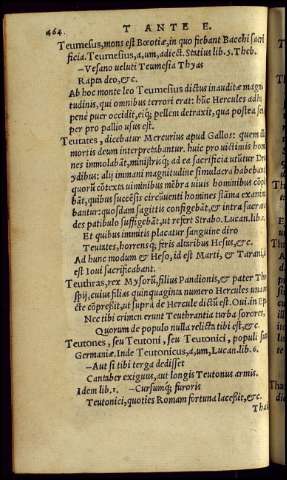 464. T ANTE E.
Teumesus, mons est Bœotiæ, in quo fiebant Bacchi sacri
ficia. Teumesius, a, um, adiect. Statius lib. 5. Theb.
—Vesano veluti Teumesia Thyas
Rapta deo, &c.
Ab hoc monte leo Teumesius dictus inauditæ magni
tudinis, qui omnibus terrori erat: hūc Hercules adhuc
penè puer occidit, eiq; pellem detraxit, qua postea sem
per pro pallio usus est.
Teutates, dicebatur Mercurius apud Gallos: quem
mortis deum interpretabantur. huic pro uictimis homi
nes immolabāt, ministrisq; ad ea sacrificia utūtur Dru
ydibus: alij immani magnitudine simulacra habebant
quorū cōtexta uiminibus mēbra uiuis hominibus cōple
bāt, quibus succēsis circūuenti homines flāma exanima
bantur: quosdam sagittis configebāt, & intra sacra
des patibulo suffigebāt, ut refert Strabo. Lucan. lib. 1.
Et quibus immitis placatur sanguine diro
Teutates, horrensq; feris altaribus Hesus, &c.
Ad hunc modum & Heso, id est Marti, & Tarani, id
est Ioui sacrificabant.
Teuthras, rex Mysorū, filius Pandionis, & pater The
spij, cuius filias quinquaginta numero Hercules una
cte cōpressit, ut supra de Hercule dictū est. Oui. in Ep.
Nec tibi crimen erunt Teuthrantia turba sorores,
Quorum de populo nulla relicta tibi est, &c.
Teutones, seu Teutoni, seu Teutonici, populi sunt
Germaniæ. Inde Teutonicus, a, um, Lucan. lib. 6.
—Aut si tibi terga dedisset
Cantaber exiguis, aut longis Teutonus armis.
Idem lib. 1. —Cursumq; furoris
Teutonici, quoties Romam fortuna lacessit, &c.
Thai